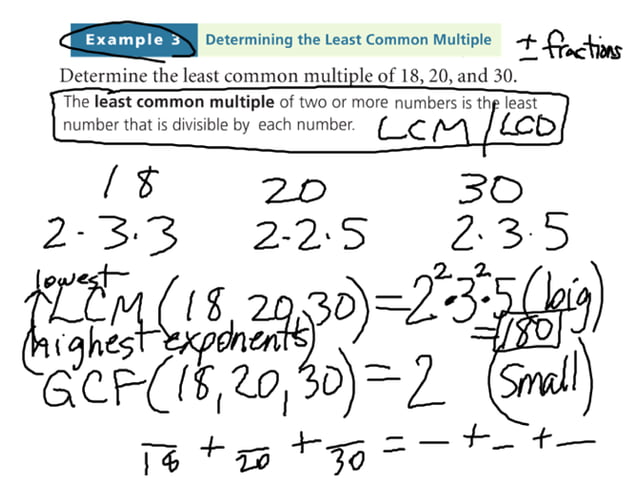 Example 3 Determining the Least Common Multiple ± fractions
Determine the least common multiple of 18, 20, and 30.
The least common multiple of two or more numbers is the least
number that is divisible by each number. LCM/LCD
18 20 30
2·3·3 2·2·5 2·3·5
lowest
LCM(18,20,30)=2²·3²·5 (big)
(highest exponents) =180
GCF(18,20,30)=2 (small)
—/18 + —/20 + —/30 = — + — + —